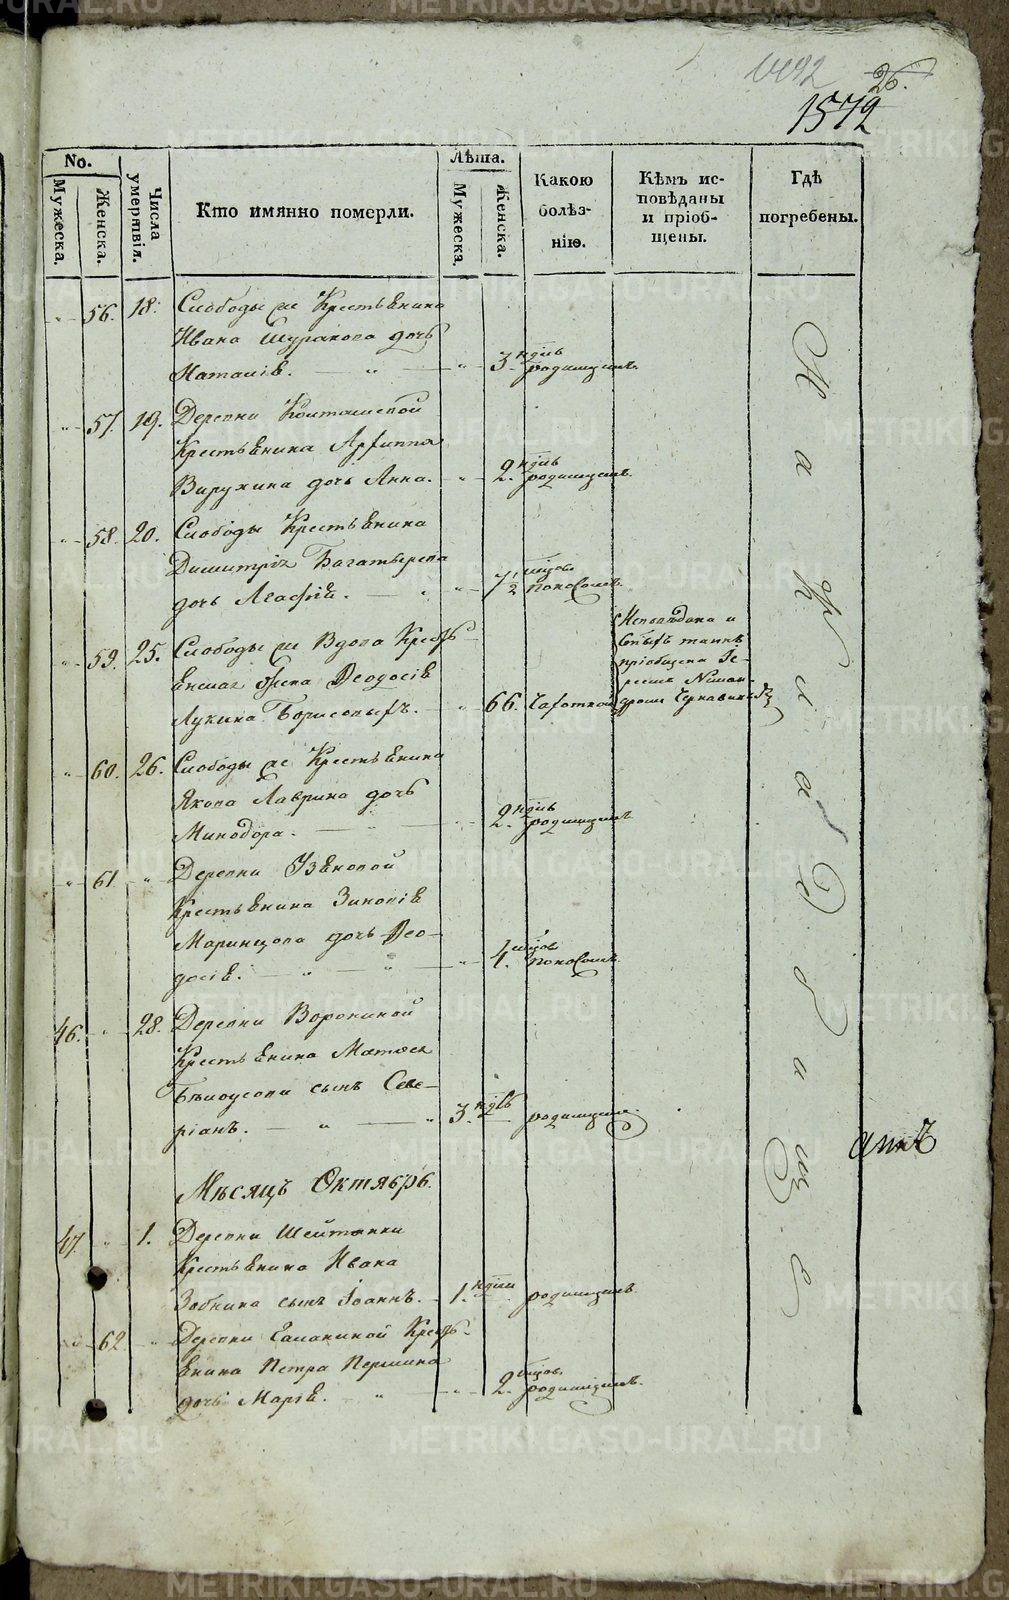 26.
1572
No.
Мужеска.
Женска.
Числа умертвія.
Кто имянно померли.
Лѣта.
Мужеска.
Женска.
Какою болѣз-
нію.
Кѣмъ ис-
повѣданы
и пріоб-
щены.
Гдѣ
погребены.
56. 18. Слободы се Крестьянина
Ивана Шуракова дочь
Наталія. 3 ндль родимцемъ.
57. 19. Деревни
Крестьянина
дочь Анна. 2 ндль родимцемъ.
58. 20. Слободы Крестьянина
Димитрія Багатырева
дочь Агафія. 7 1/2 мцовъ поносомъ.
59. 25. Слободы се Вдова Кресть-
янская жена Ѳеодосія
Лукина Борисовыхъ. 66. Чахоткой
Исповѣдана и
Святыхъ таинъ
пріобщена Іе-
реемъ Никан-
дромъ
60. 26. Слободы се Крестьянина
Якова Лаврина дочь
Минодора. 2 ндль родимцемъ
61. Деревни
Крестьянина Зиновія
Маринцова дочь Ѳео-
досія. 4 мцовъ поносомъ.
46. 28. Деревни Ворониной
Крестьянина Матвея
Бѣлоусова сынъ Севе-
ріанъ. 3 ндль родимцемъ.
Мѣсяцъ Октябрь.
47. 1. Деревни Шейтанки
Крестьянина Ивана
Зобнина сынъ Іоаннъ. 1. ндли родимцемъ.
62. Деревни Кресть-
янина Петра Першина
дочь Марія. 2 мцовъ родимцемъ.
На кладбище
METRIKI.GASO-URAL.RU